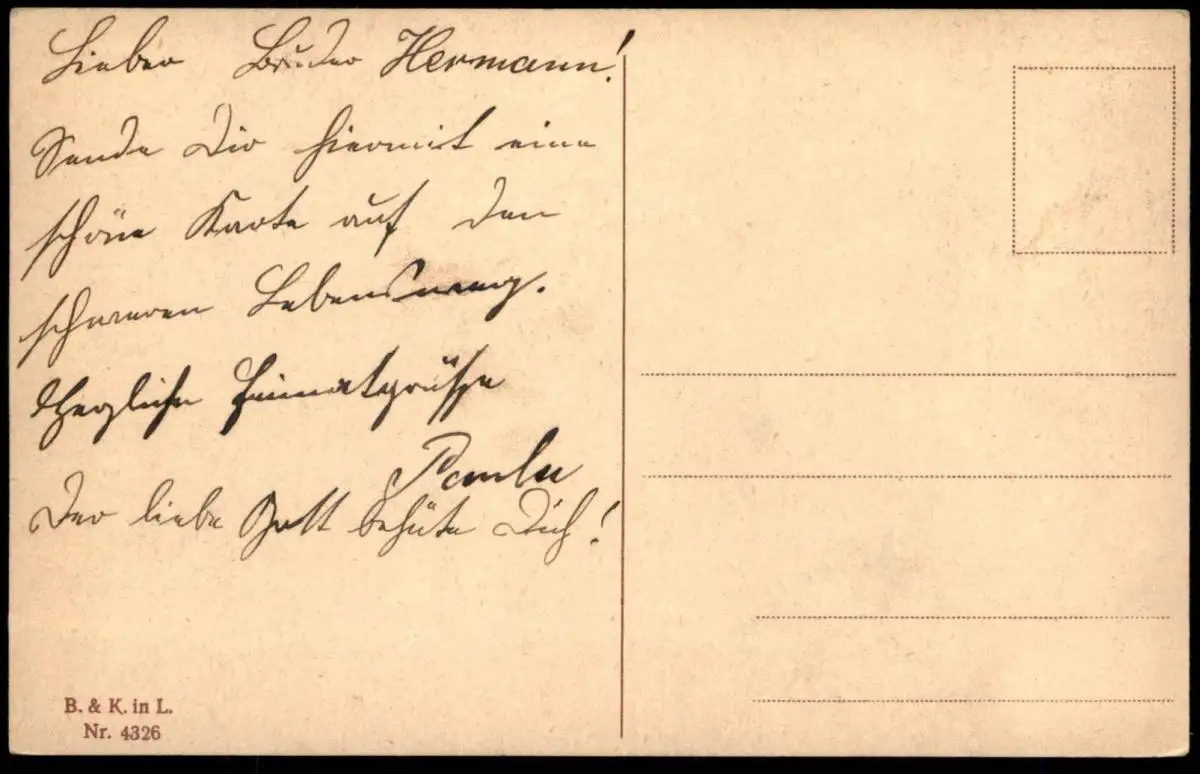 Lieber Bruder Hermann!
Sende Dir hiermit eine
schöne Karte auf den
schweren Lebensweg.
Herzliche Heimatgrüsse
Paula
Der liebe Gott behüte Dich!
B. & K. in L.
Nr. 4326